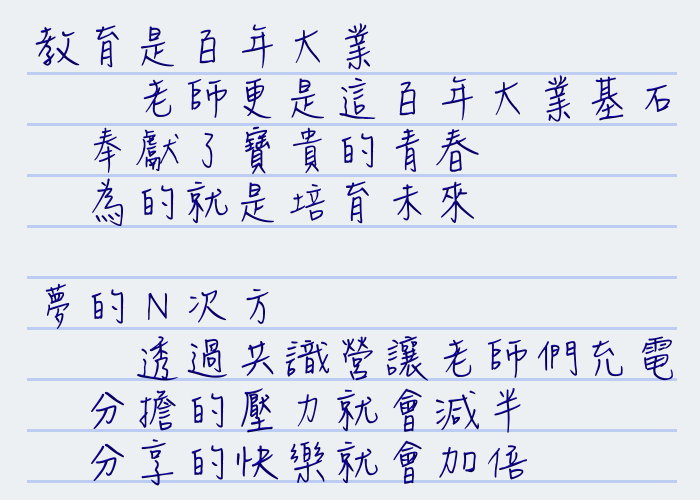 教育是百年大業
老師更是這百年大業基石
奉獻了寶貴的青春
為的就是培育未來
夢的N次方
透過共識營讓老師們充電
分擔的壓力就會減半
分享的快樂就會加倍